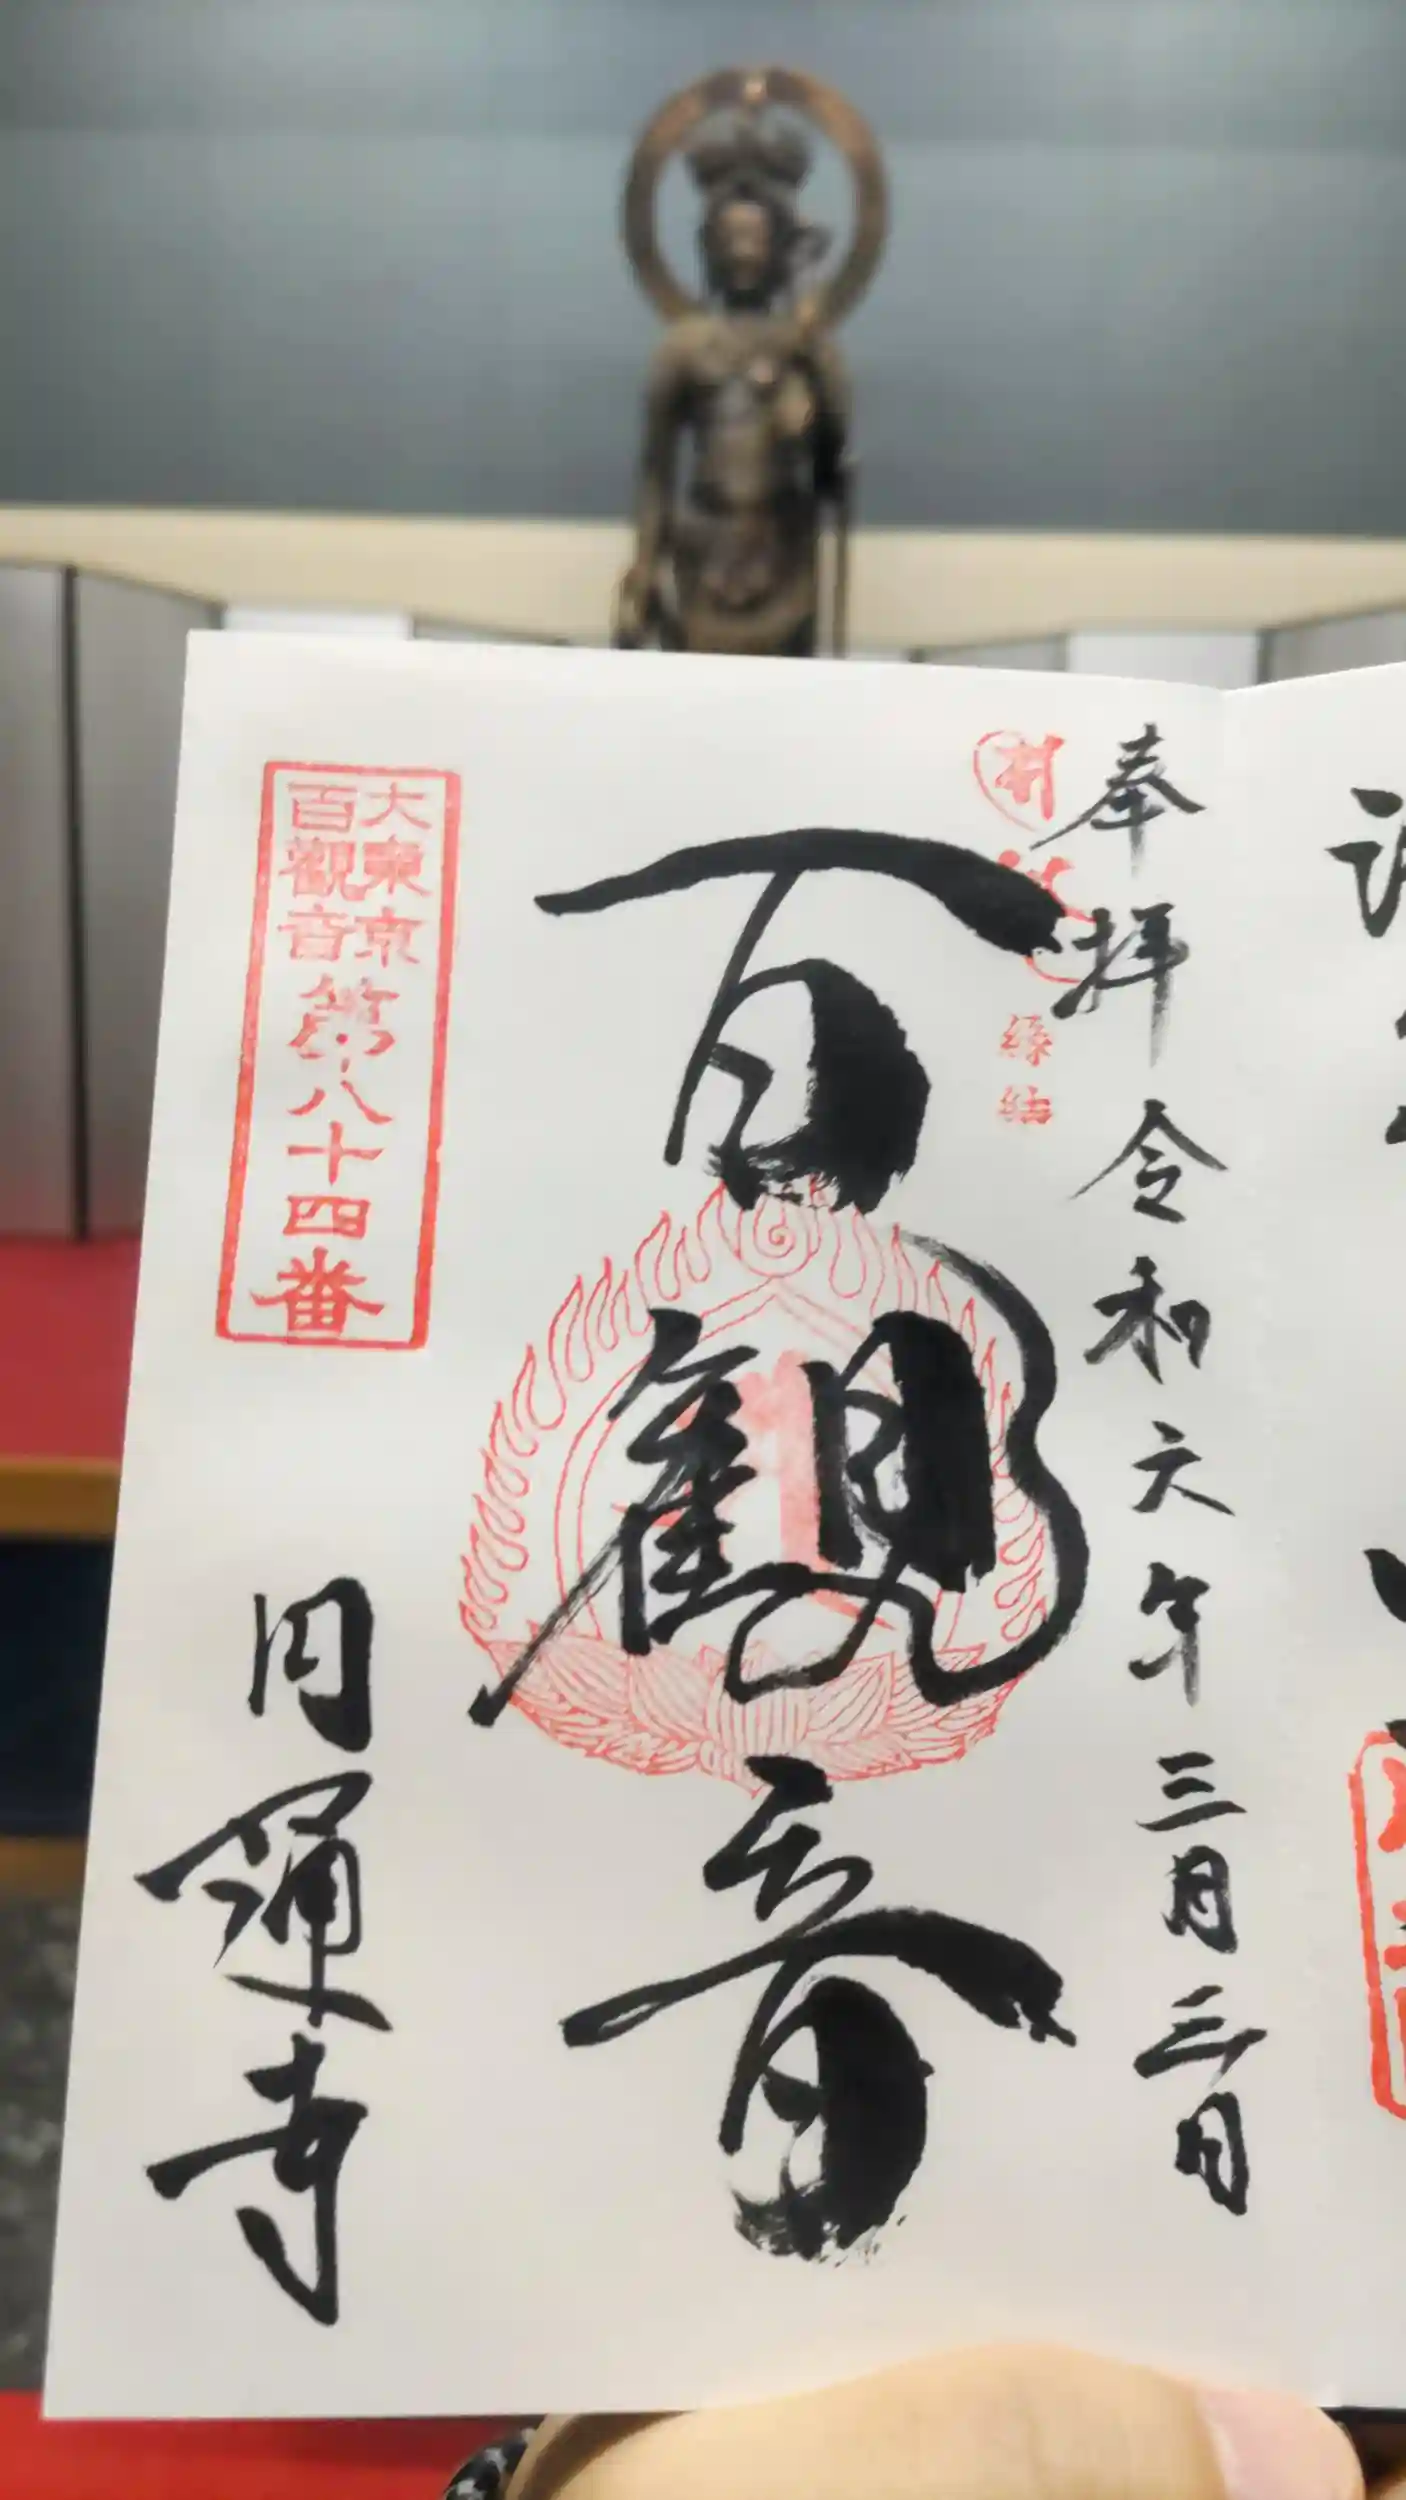 奉拝 令和六年三月三日
縁結
百観音
大東京
百觀音
第八十四番
円通寺